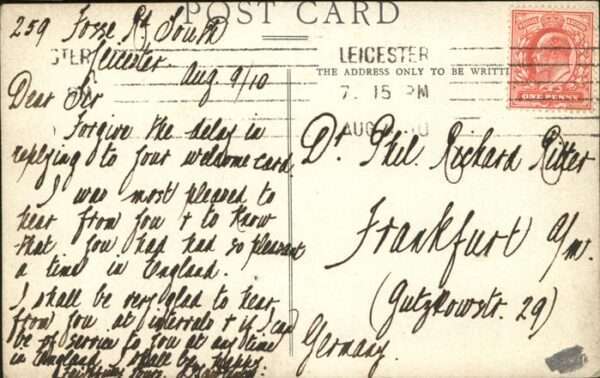 POST CARD
259 Fosse Rd South
Leicester.
Aug. 9/10
Dear Sir
Forgive the delay in
replying to your welcome card.
I was most pleased to
hear from you & to know
that you had had so pleasant
a time in England.
I shall be very glad to hear
from you at intervals & if I can
be of service to you at any time
in England, I shall be happy.
Yours
LEICESTER
7.15 PM
AUG 10
THE ADDRESS ONLY TO BE WRITTE
ONE PENNY
Dr Phil. Richard Ritter
Frankfurt a/m.
(Gutzkowstr. 29)
Germany.